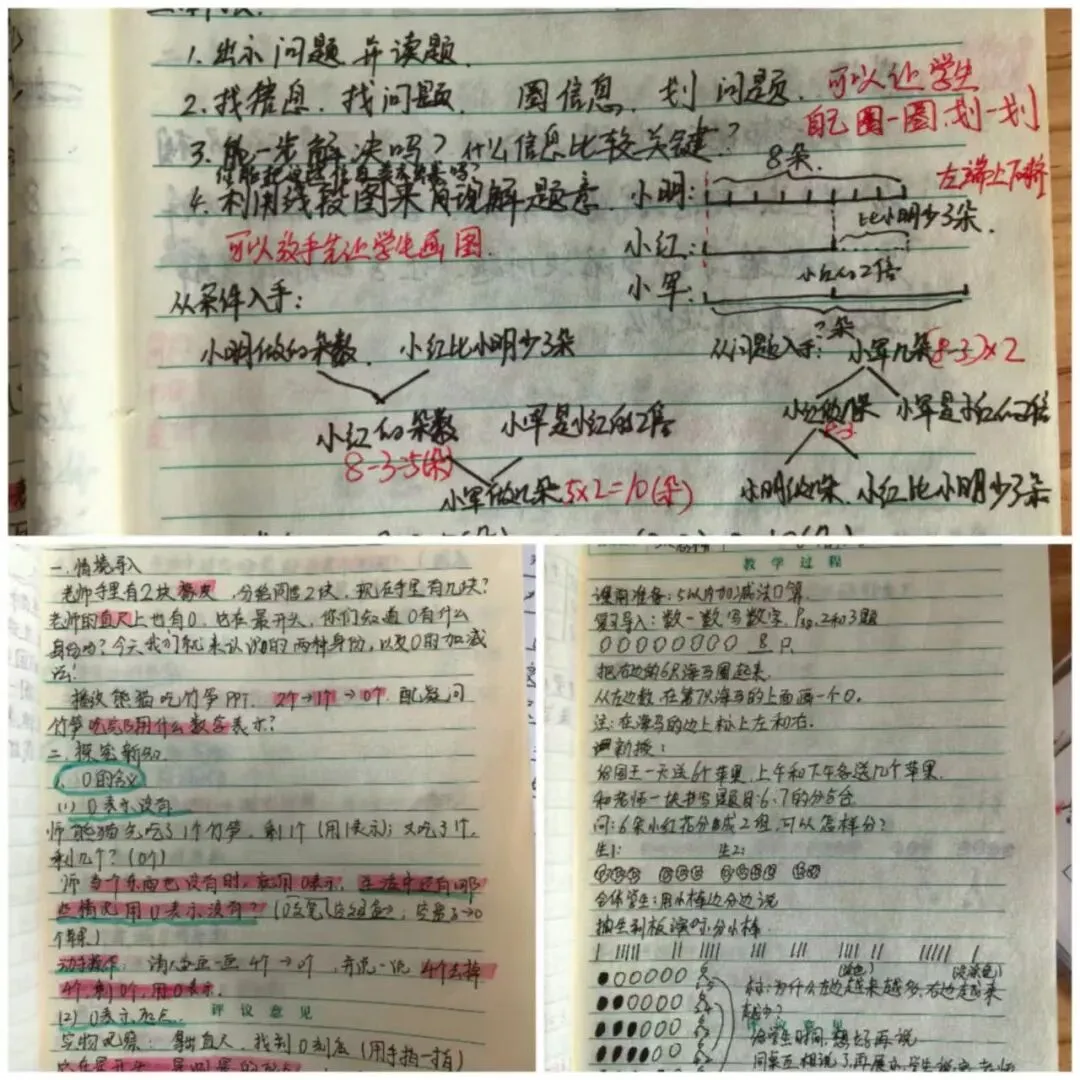 1. 出示问题并读题.
2. 找信息. 找问题. 圈信息. 划问题. 可以让学生
自己圈一圈.划一划
3. 能一步解决吗? 什么信息比较关键?
4. 利用线段图来理解题意.
可以放手先让学生画图.
8朵.
小明:
左端上下对齐
比小明少3朵.
小红:
小红的2倍
小军:
?朵
从条件入手:
小明做的朵数. 小红比小明少3朵
小红的朵数 小军是小红的2倍
8-3=5(朵)
小军做几朵 5x2=10(朵)
从问题入手: 小军几朵 (8-3)x2
小红做几朵 小军是小红的2倍
8-3
小明做几朵. 小红比小明少3朵
一.情境导入
老师手里有2块橡皮,分给同学2块,现在手里有几块?
老师的直尺上也有0,也在最开头,你们知道0有什么
身份吗?今天我们就来认识0的两种身份,以及0的加减
法!
播放熊猫吃竹笋PPT. 2个→1个→0个. 配疑问
竹笋吃完后用什么数字表示?
二.探究新知
1、0的含义
(1) 0表示没有
师:熊猫先吃了1个竹笋,剩1个(用1表示);又吃了1个,
剩几个?(0个)
师:当个东西也没有时,就用0表示,生活中还有哪
些情况用0表示没有?
个苹果)
动手操作: 请人去画一画4个→0个,并说一说4个去掉
4个,剩0个,用0表示.
评议意见
(2) 0表示起点.
实物观察: 拿出直尺,找到0刻度(用手指一指)
教学过程
课前准备:5以内加减法口算.
复习导入:数一数写数字,
0 0 0 0 0 0 0 0 8 只
把右边的6只海马圈起来.
从左边数,在第7只海马的上面画一个0.
注:在海马的边上标上左和右.
新授:
给国王一天送6个苹果,上午和下午各送几个苹果.
和老师一块书写题目:6、7的分与合
问:6朵小红花分成2组,可以怎样分?
生1: 生2:
全体学生:用小棒边分边说
抽生到板演时分小棒.
师:为什么左边越来越多,右边越来
越少?
评议意见
给学生时间,想好再说